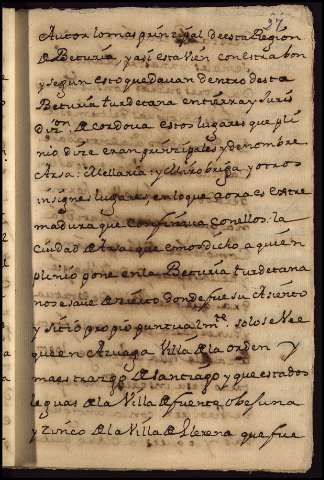 27
Autor lo mas prinçipal de esta Region
de Beturia, y así esta vien con estrabon
y segun esto quedavan dentro desta
Beturia turdetana en tierra y Juris
diz.on de cordova estos lugares que pli
nio dize eran prinzipales y de nombre
Arsa: Mellaria: y Mirobriga y otros
insignes lugares, en lo que aora es estre
madura que confinava con ellos: la
ciudad de Arsa que emos dicho, a quien
plinio pone en la Beturia turdetana
no se save de zierto donde fue su Asiento
y sitio propio puntualm.te solo se vee
que en Azuaga Villa de la orden y
maestrazgo de Santiago y que esta dos
leguas de la Villa de fuente obejuna
y zinco de la Villa de Llerena que fue